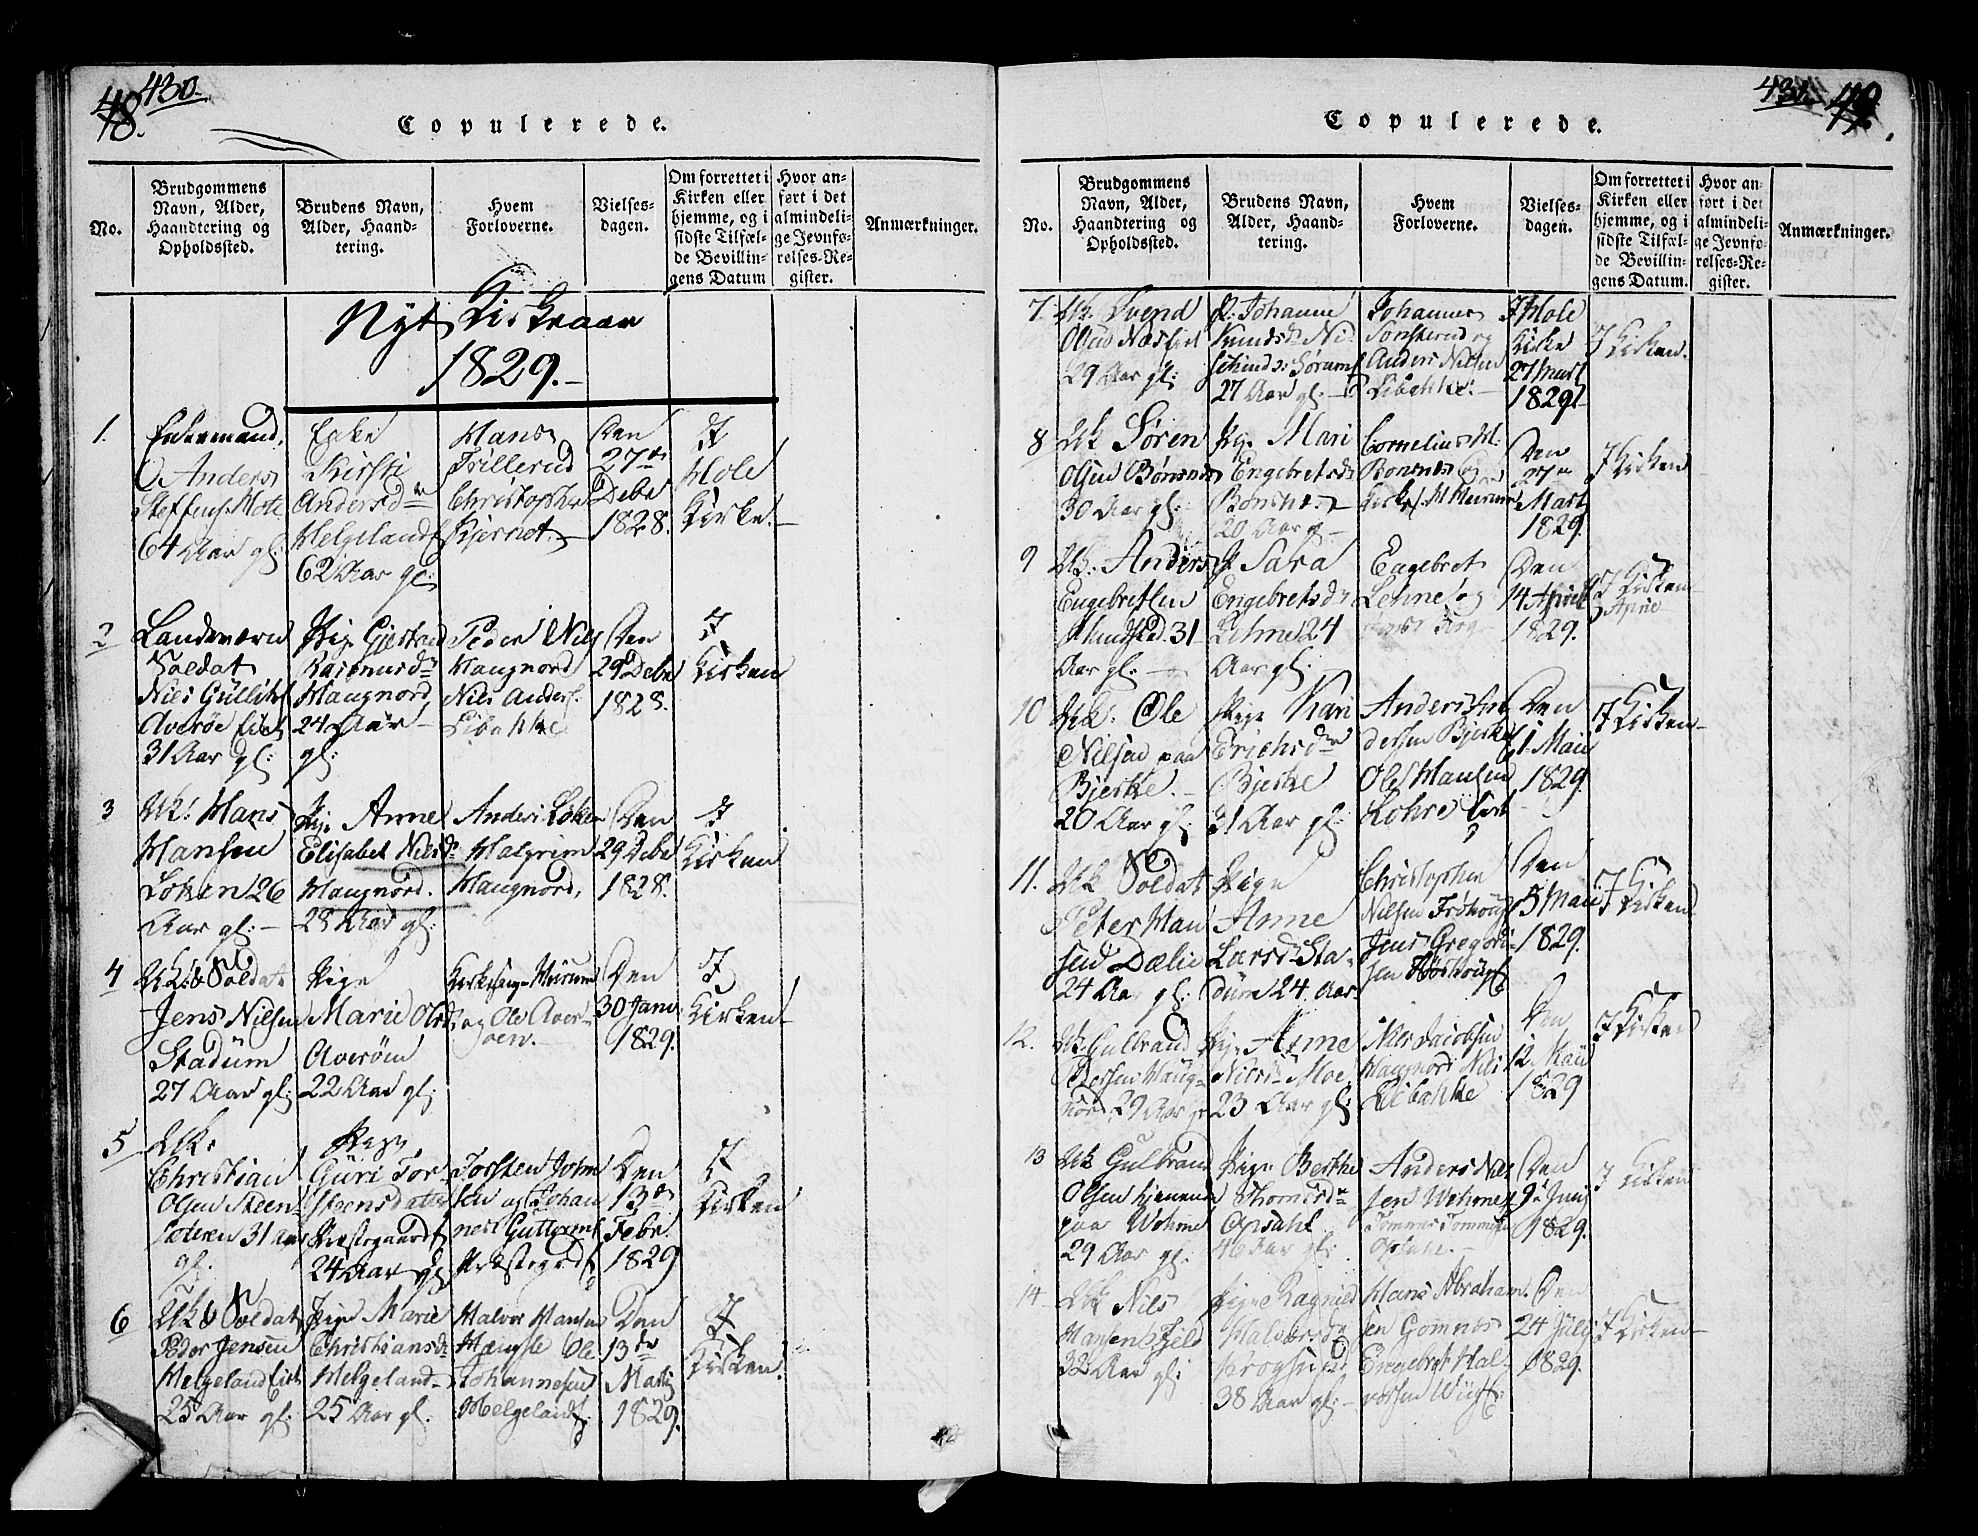 48. 430.
Copulerede.
No.
Brudgommens
Navn, Alder,
Haandtering og
Opholdssted.
Brudens Navn,
Alder, Haand-
tering.
Hvem
Forloverne.
Vielses-
dagen.
Om forrettet i
Kirken eller
hjemme, og i
sidste Tilfæl-
de Bevillin-
gens Datum
Hvor an-
ført i det
almindeli-
ge Jevnfø-
relses-Re-
gister.
Anmærkninger.
Nyt Kirkeaar
1829.
1.
Enkemand,
Anders
Steffens. Hole
64 Aar gl:
Enke
Kirsti
Andersd
Helgeland
62 Aar gl:
Hans
Trillerud
Christopher
Bjernet.
Den
27de
Debr
1828.
I
Hole
Kirke.
2
Landeværn
Soldat
Nils Gulliks
Averøe Eiet
31 Aar gl:
Pige Gjertrud
Rasmusd
Haugnord
24 Aar
gl:
Peder Nils
Haugnord
Nils Anders.
Libakke
Den
29 Debr
1828.
I
Kirken
3
Uk: Hans
Hansen
Løken 26
Aar gl:
Pig. Anne
Elisabet Nilsd
Haugnord.
28 Aar gl:
Anders Løken
Halgrim
Haugnord.
Den
29 Debr
1828.
I
Kirken
4
Uk: & Soldat
Jens Nilsen
Stadum
27 Aar gl:
Pige
Marie Olsd
Averøen
22 Aar gl:
og Ole Aver-
øen.
Den
30 Janv
1829.
I
Kirken
5
Uk:
Christian
Olsen Steen-
31 aar
gl.
Pige
Guri Tor-
steensdatter
Præstegaard
24 Aar gl
Torsten John
sen og Johan
nes Guttorms
Præstegrd
Den
13de
Febr.
1829
I
Kirken
6
Uk & Soldat
Peder Jensen
Helgeland Eiet
25 Aar gl.
Pige Marie
Christiansd
Helgeland
25 Aar gl.
Halvor Hansen
Ole
Johannesen
Helgeland
Den
13de
Marti
1829.
I
Kirken.
431. 49.
Copulerede.
No.
Brudgommens
Navn, Alder,
Haandtering og
Opholdssted.
Brudens Navn,
Alder, Haand-
tering.
Hvem
Forloverne.
Vielses-
dagen.
Om forrettet i
Kirken eller
hjemme, og i
sidste Tilfæl-
de Bevillin-
gens Datum.
Hvor an-
ført i det
almindeli-
ge Jevnfø-
relses-Re-
gister.
Anmærkninger.
7.
Uk. Svend
Olsen Næs Eiet
29 Aar gl:
P. Johanne
Knudsd
27 Aar gl.
Johannes
og
Anders Nilsen
Libakke.
I Hole
Kirke
27 Mart
1829
I Kirken.
8
Uk Søren
Olsen Bønsnæs
30 Aar gl.
Pig. Mari
Engebretsd
Bønsnæs
20 Aar g
Cornelius H:
Bonsnæs og
Den
27de
Mart
1829.
I Kirken
9
Uk. Anders
Engebretsen
31
Aar gl.
P. Sara
Engebretsd
Lehne 24
Aar gl:
Engebret
Lehne og
Den
14 April
1829.
I Kirken
April
10
Uk. Ole
Nilsen paa
Bjerke.
20 Aar gl:
Pige Kari
Erichsd
Bjerke
21 Aar gl:
Anders An-
dersen Bjerke
Ole Hansen
Lohre Eiet
Den
1 Maii
1829.
I Kirken
11.
Uk Soldat
Peter Han
sen Dælie
24 Aar gl.
Pige
Anne
Larsd Sta-
dum 24 Aar
Christopher
Nilsen Frøhoug
Jens Gregori-
sen
Den
5 Maii
1829.
I Kirken.
12.
Uk. Gulbrand
Pedersen Haug-
nord 29 Aar gl
Pig. Anne
Nilsd Moe
23 Aar gl:
Niels Jacobsen
Haugnord Nils
Libakke
Den
12 Maii
1829
I Kirken
13
Uk Gulbrand
Olsen tjenende
paa Wehme
29 Aar gl:
Pige Berthe
Thomasd
Opsahl
46 Aar gl:
Anders Nil-
sen Wehme
Tommes Tommes
Opsahl.
Den
9de Junij
1829.
I Kirken
14
Uk Nils
Hansen Fjeld
32 Aar gl:
Pige Ragnild
Halvorsd
38 Aar gl:
Hans Abraham-
sen Gomnæs
Engebret Hal-
vorsen
Den
24 Julij
1829.
I Kirken